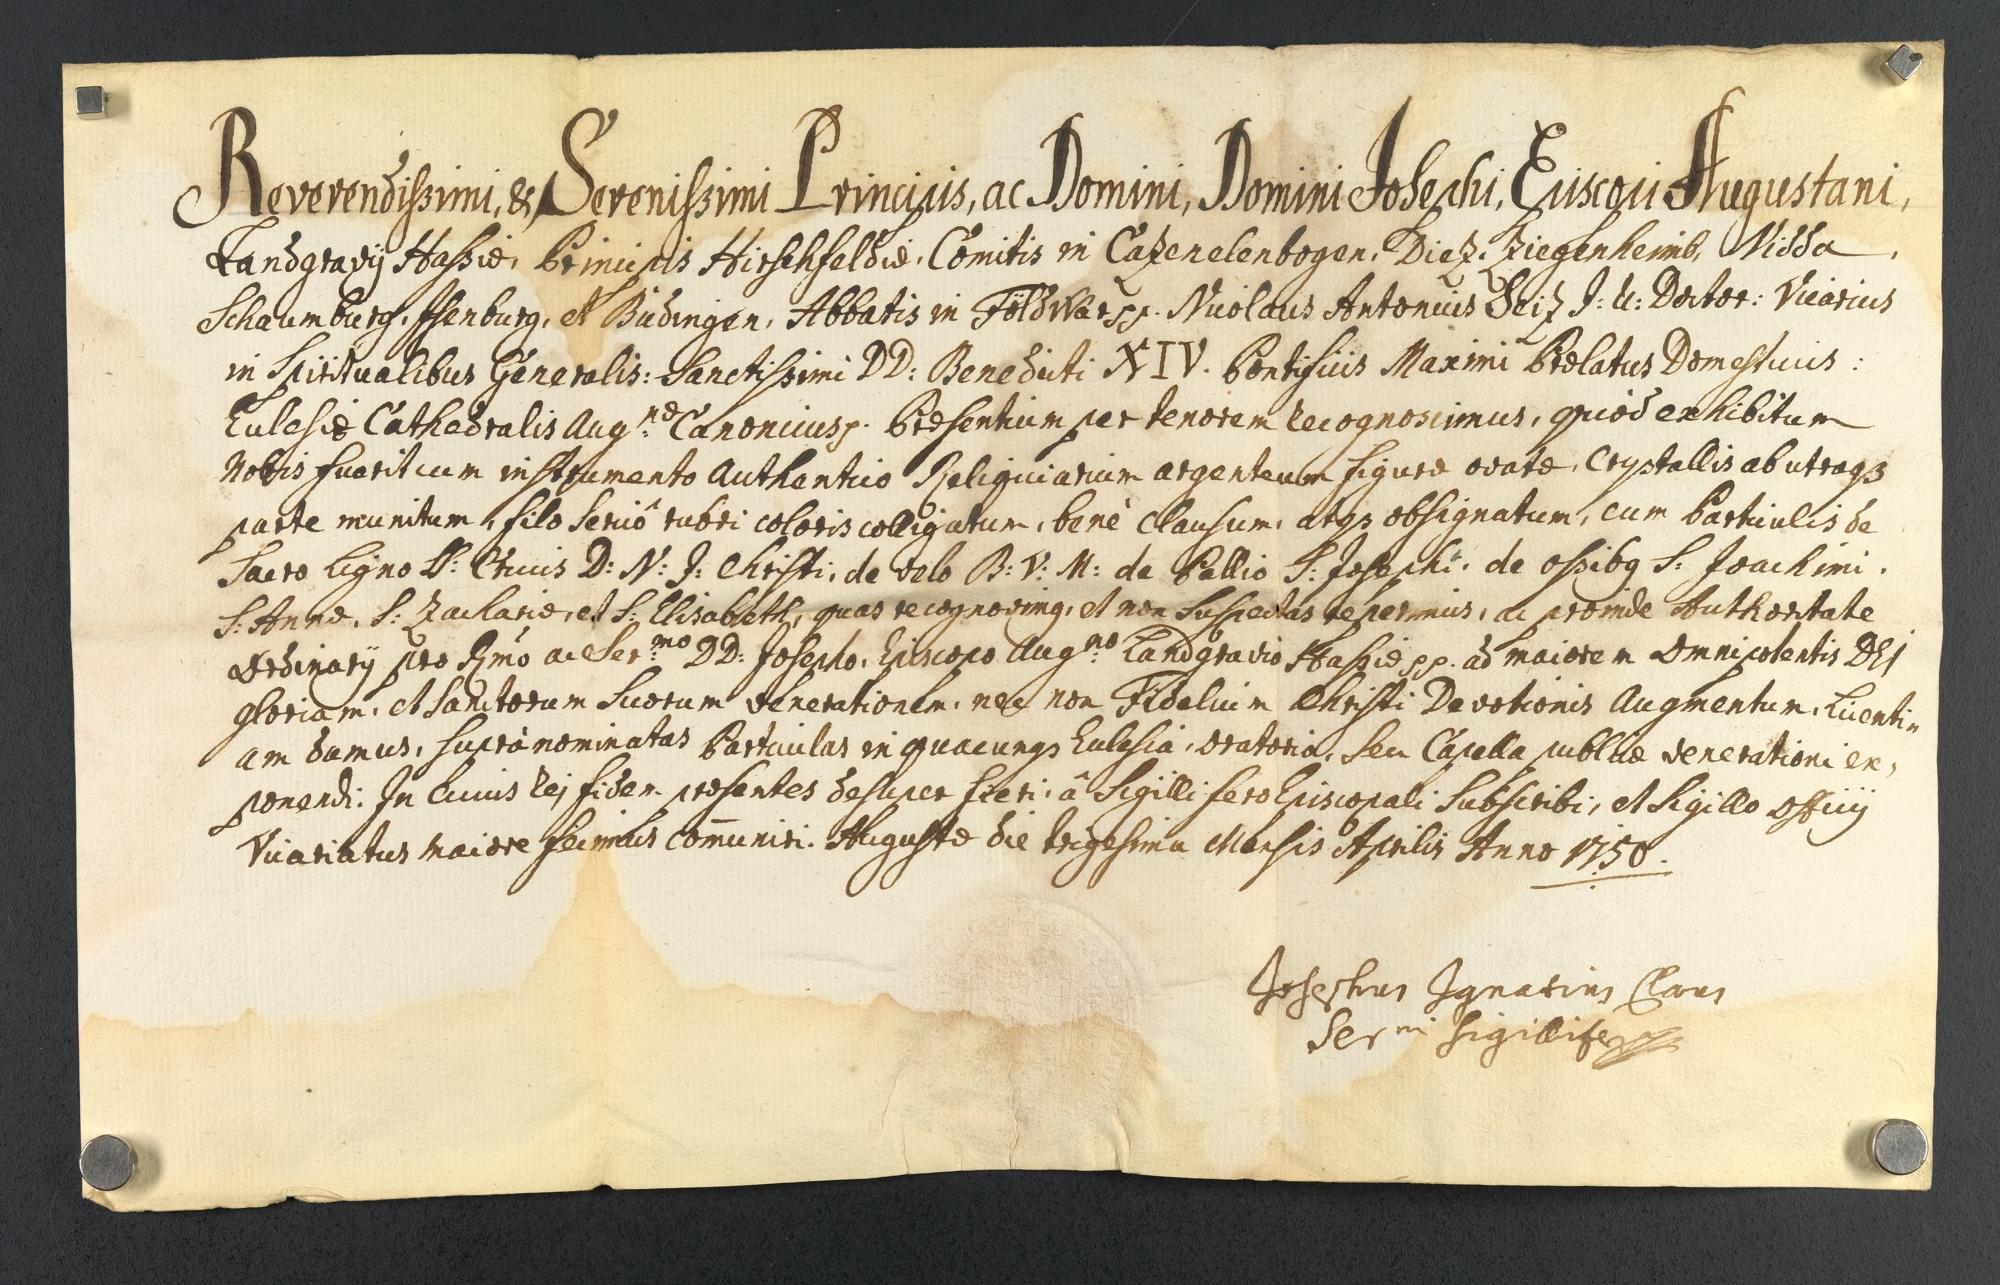 Reverendissimi, & Serenissimi Principis, ac Domini, Domini Josephi, Episcopi Augustani,
Landgravij Hassiæ, Principis Hirschfeldiæ, Comitis in Cazenelenbogen, Diez, Ziegenheimb, Nidda,
Schaumburg, Isenburg, et Büdingen, Abbatis in Földwar pp. Nicolaus Antonius Seiz J: U: Doctor: Vicarius
in Spiritualibus Generalis: Sanctissimi DD: Benedicti XIV. Pontificis Maximi Prælatus Domesticus:
Ecclesiæ Cathedralis Aug:næ Canonicus p. Præsentium per tenorem recognoscimus, quod exhibitum
Nobis fuerit cum instrumento Authentico Reliquiarium argenteum figuræ ovatæ, Crystallis ab utraqz
parte munitum, filo Sericô rubri coloris colligatum, benè clausum, atqz obsignatum, cum Particulis de
Sacro Ligno SS: Crucis D: N: J: Christi, de velo B: V: M: de Pallio S: Josephi, de ossibq S: Joachimi,
S: Annæ, S: Zachariæ, et S: Elisabeth, quas recognovimq, et non suspectas reperimus, ac proinde Authoritate
Ordinarij pro Rmô ac Ser:mo DD: Josepho, Episcopo Aug:no Landgravio Hassiæ pp. ad maiorem Omnipotentis DEI
gloriam, et Sanctorum Suorum venerationem, nec non Fidelium Christi Devotionis Augmentum, Licenti-
am damus, supránominatas Particulas in quacunqz Ecclesia, oratorio, seu Capella publicæ venerationi ex-
ponendi. In Cuius rej fidem præsentes desuper fieri, â Sigillifero Episcopali Subscribi, et Sigillo Officij
Vicariatus maiore fecimus com̄uniri. Augustæ die trigesima Mensis Aprilis Anno 1750.
Josephus Ignatius Claus
Ser:mi Sigillifer